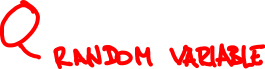 Q RANDOM VARIABLE